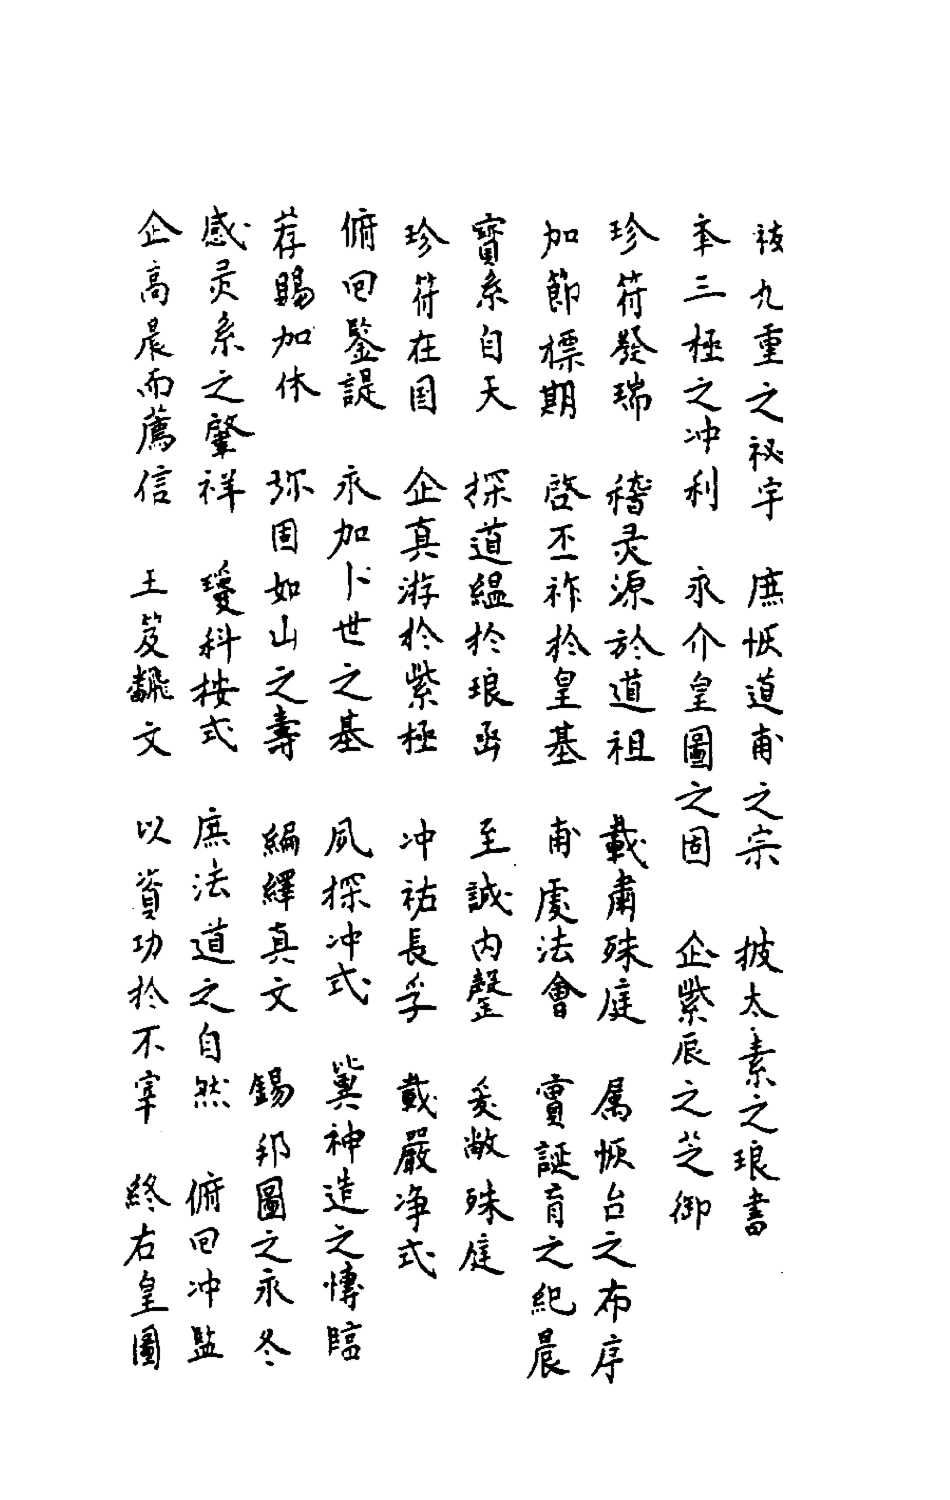 祓九重之祕宇 庶恢道甫之宗 披太素之琅書
奉三極之冲利 永介皇圖之固 企紫辰之芝御
珍符發瑞 稽灵源於道祖 載肅殊庭 属恢台之布序
加節標期 啓丕祚於皇基 甫處法會 賣誕育之紀晨
寳系自天 探道緼於琅函 至誠内罄 爰敞殊庭
珍符在国 企真游於紫極 冲祐長孚 戴嚴净式
俯回鑒諟 永加卜世之基 夙探冲式 冀神造之慱臨
荐賜加休 弥固如山之壽 編繹真文 錫邦圖之永冬
感灵系之肇祥 瓊科按式 庶法道之自然 俯回冲監
企高晨而薦信 王笈飜文 以資功於不宰 終右皇圖